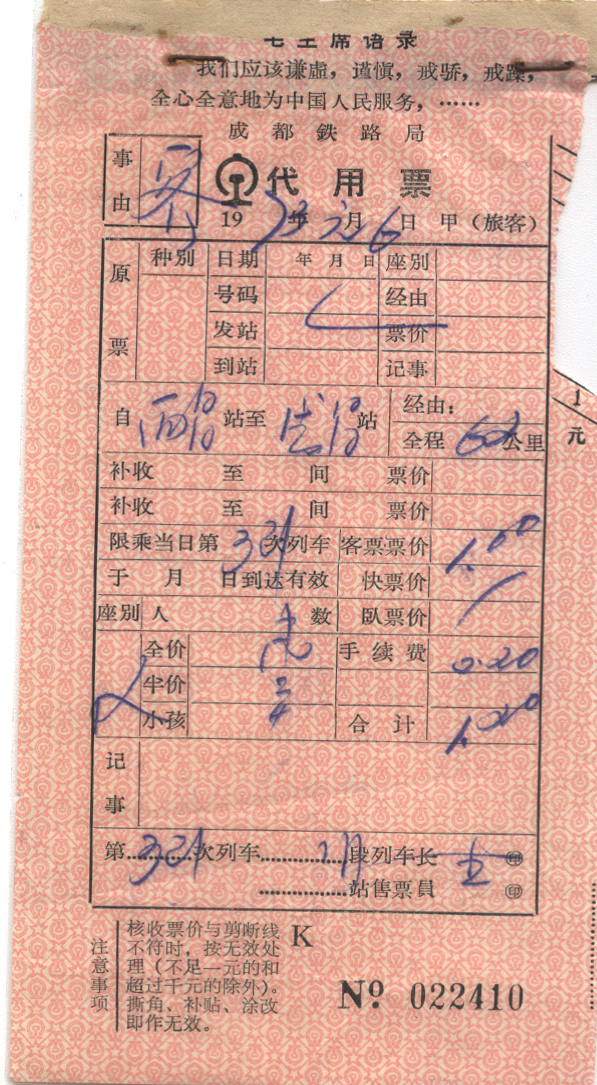 毛主席语录
我们应该谦虚，谨慎，戒骄，戒躁，
全心全意地为中国人民服务，……
成都鉄路局
事由
代用票
1973年元月6日 甲（旅客）
原票 种别 日期 年月日 座别
号码 经由
发站 票价
到站 记事
自 站至 站 经由：
全程 公里
1元
补收 至 间 票价
补收 至 间 票价
限乘当日第321次列车 客票票价 1.00
于 月 日到达有效 快票价
座别 人数 臥票价
全价 手续费 0.20
半价
小孩 合计 1.20
记事
第321次列车 段列车长 ㊞
站售票員 ㊞
注意事项
核收票价与剪断线
不符时，按无效处
理（不足一元的和
超过千元的除外）。
撕角、补贴、涂改
即作无效。
K
№ 022410